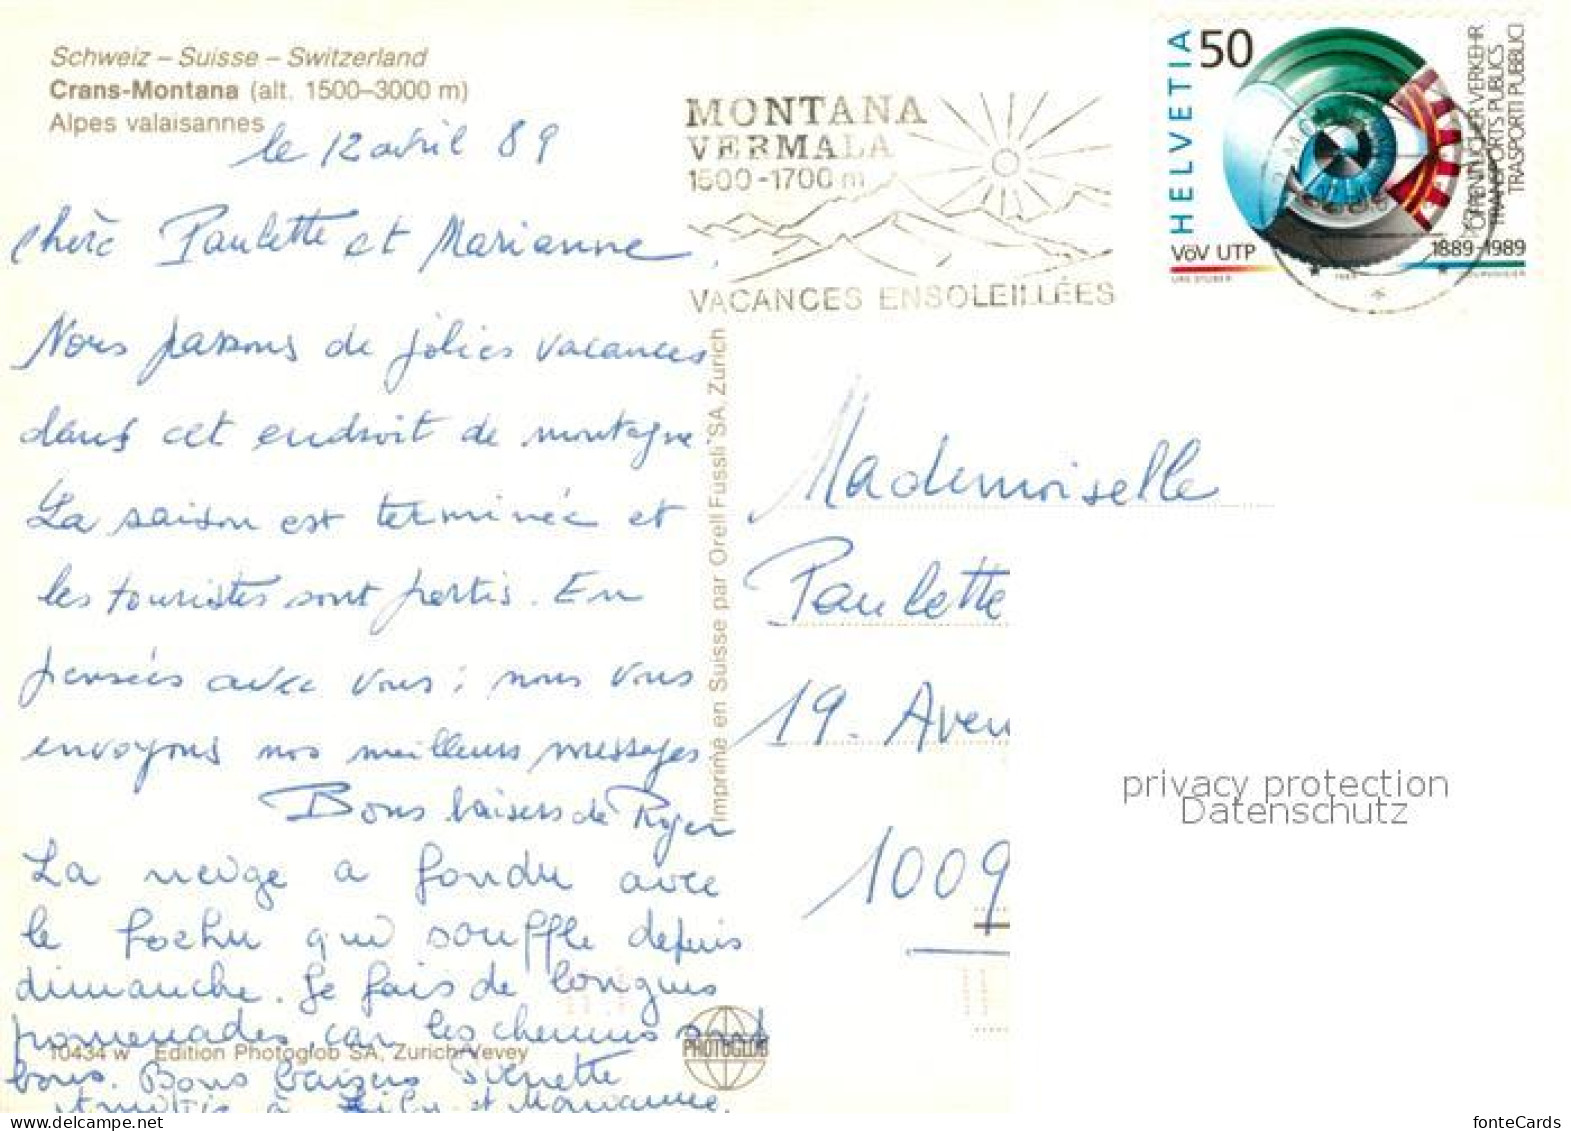 Schweiz – Suisse – Switzerland
Crans-Montana (alt. 1500–3000 m)
Alpes valaisannes
le 12 avril 89
chère Paulette et Marianne,
Nous passons de jolies vacances
dans cet endroit de montagne
La saison est terminée et
les touristes sont partis. En
pensées avec vous; nous vous
envoyons nos meilleurs messages
Bons baisers de Roger
La neige a fondu avec
le foehn qui souffle depuis
dimanche. Je fais de longues
promenades, car les chemins sont
bons. Bons baisers
Amitiés à et Marianne.
10434 w Edition Photoglob SA, Zurich/Vevey
PHOTOGLOB
Imprimé en Suisse par Orell Füssli SA, Zurich
MONTANA
VERMALA
1500-1700 m
VACANCES ENSOLEILLÉES
HELVETIA
50
VöV UTP
URS STUBER
1889-1989
COURVOISIER
ÖFFENTLICHER VERKEHR
TRANSPORTS PUBLICS
TRASPORTI PUBBLICI
Mademoiselle
Paulette
19. Aven
1009
privacy protection
Datenschutz
fonteCards